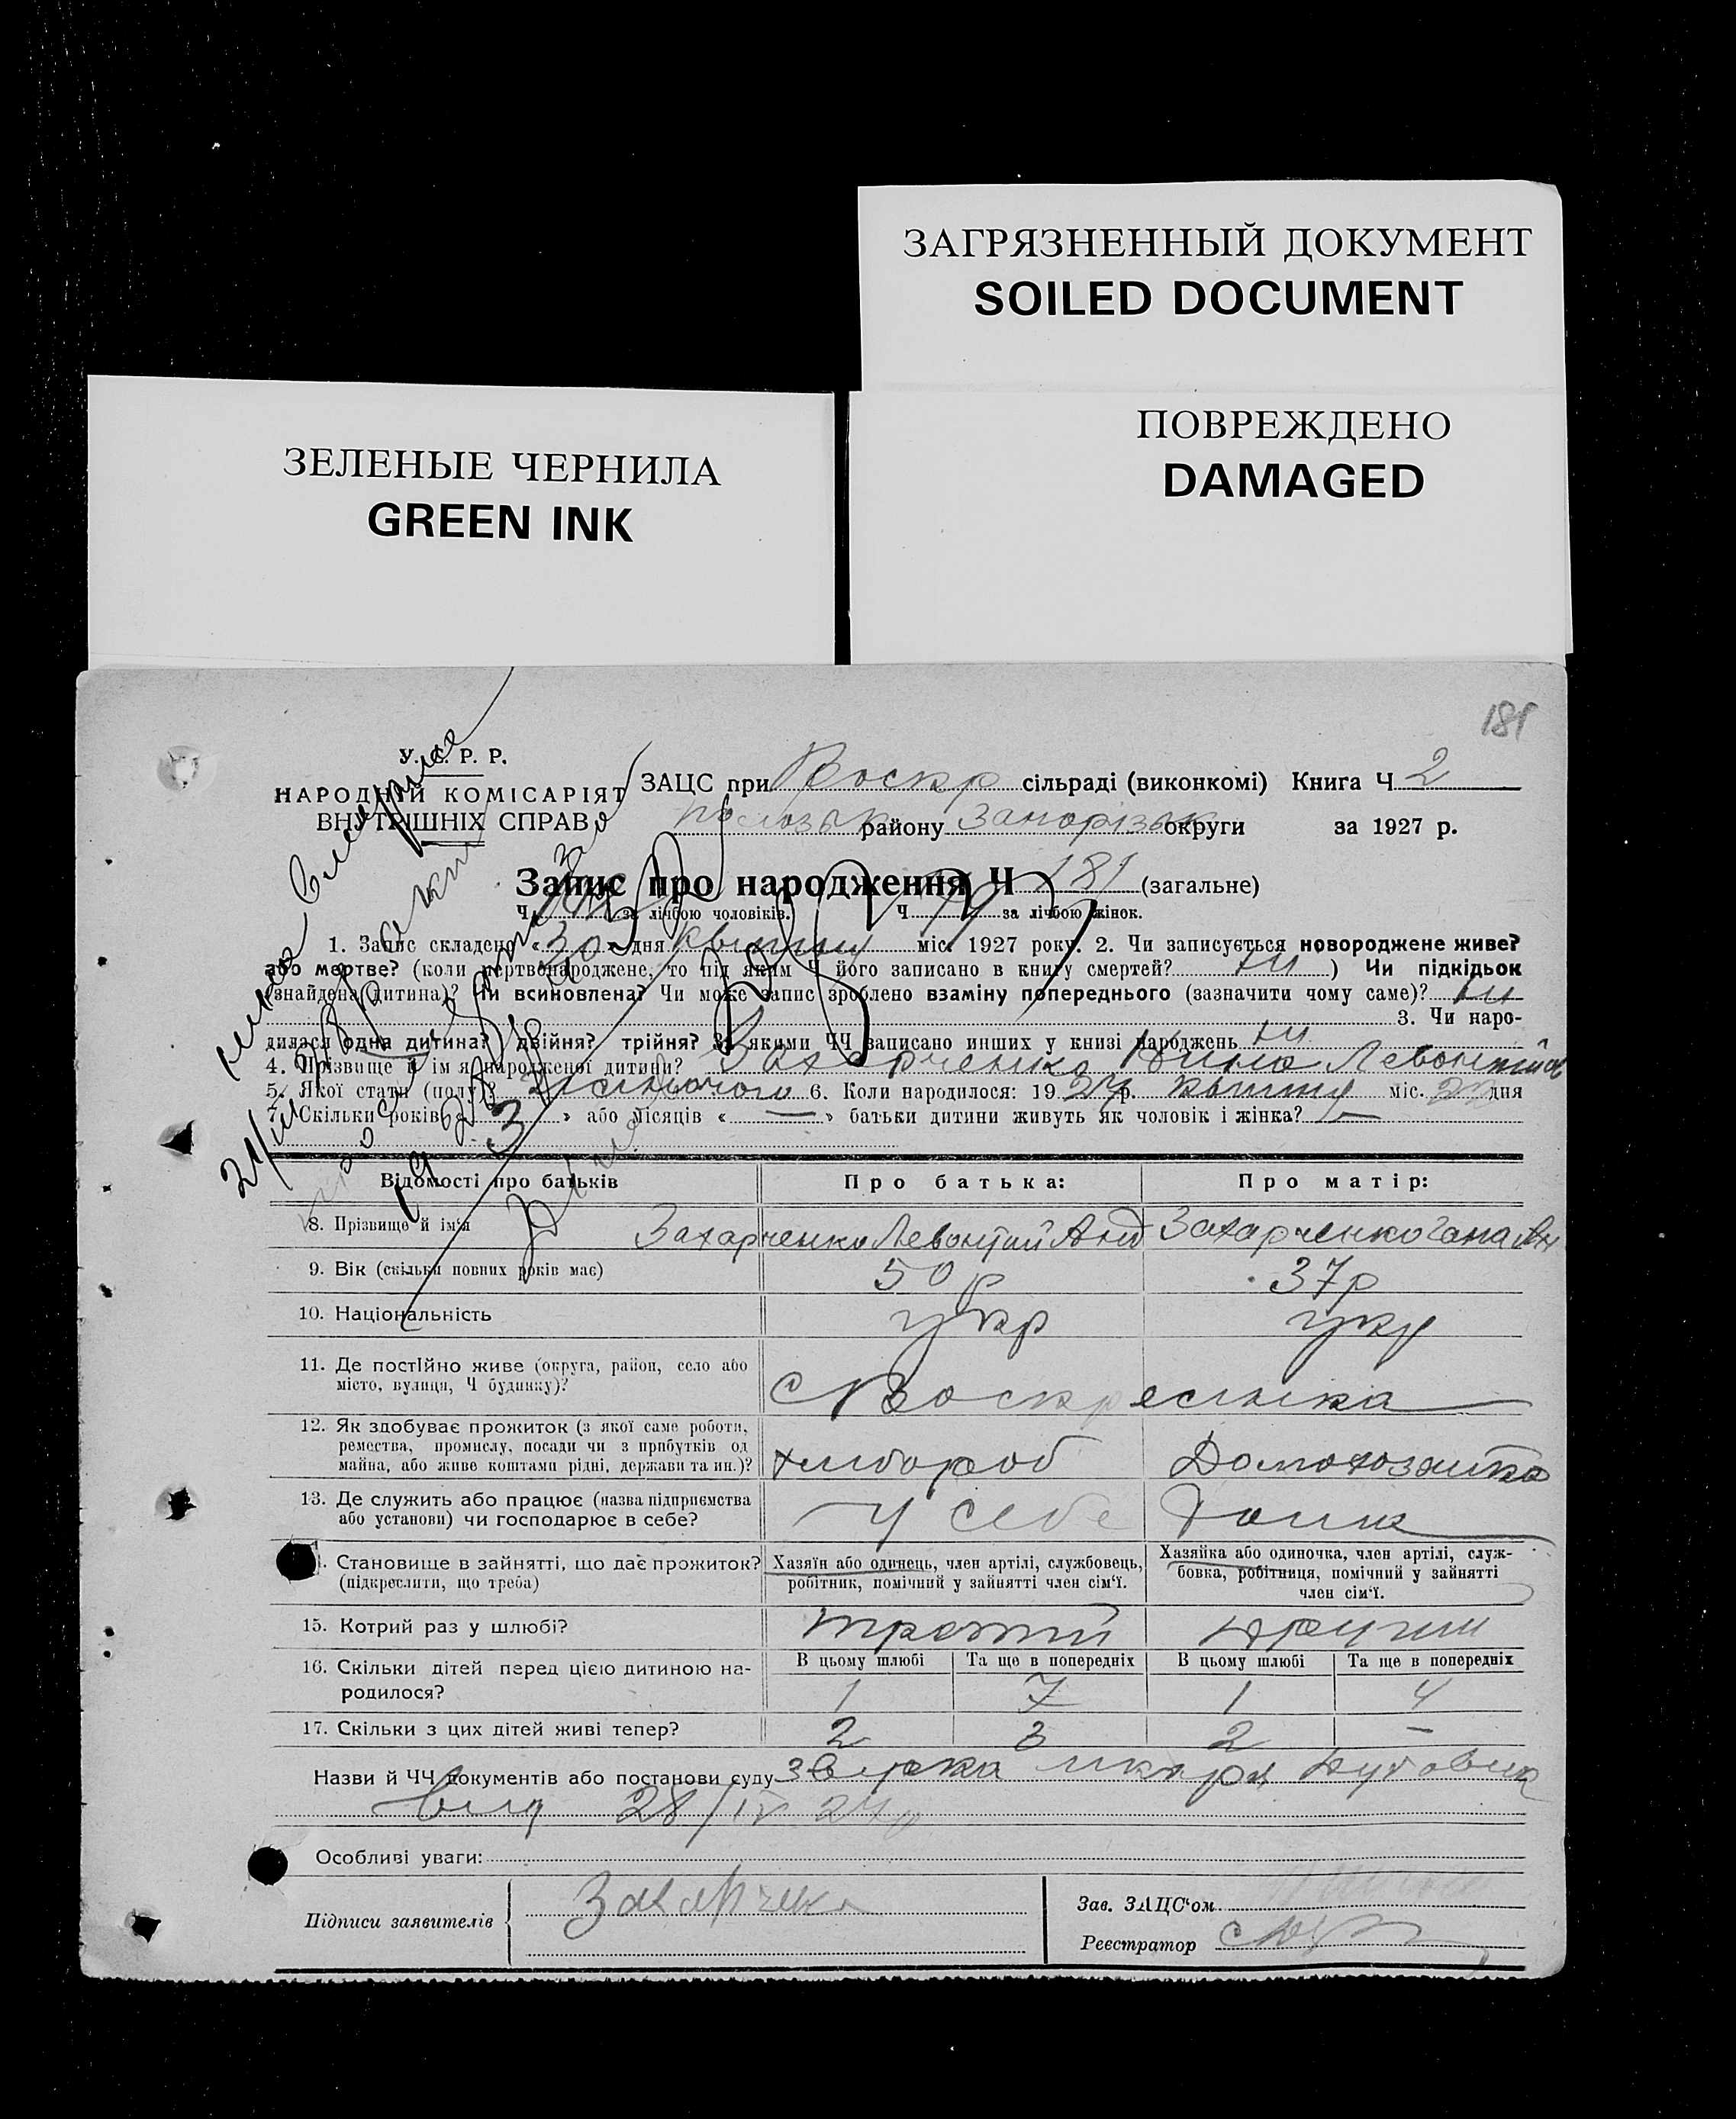 ЗАГРЯЗНЕННЫЙ ДОКУМЕНТ
SOILED DOCUMENT
ПОВРЕЖДЕНО
DAMAGED
ЗЕЛЕНЫЕ ЧЕРНИЛА
GREEN INK
181
У. С. Р. Р.
НАРОДНІЙ КОМІСАРІЯТ
ВНУТРІШНІХ СПРАВ
ЗАЦС при Воскр сільраді (виконкомі) Книга Ч 2
району Запорізьк округи за 1927 р.
Запис про народження Ч 181 (загальне)
Ч за лічбою чоловіків. Ч за лічбою жінок.
1. Запис складено «30» дня квітня міс. 1927 року. 2. Чи записується новороджене живе?
або мертве? (коли мертвонароджене, то під яким Ч його записано в книгу смертей? ні ) Чи підкідьок
(знайдена дитина)? Чи всиновлена? Чи може запис зроблено взаміну попереднього (зазначити чому саме)? ні
3. Чи наро-
дилася одна дитина? двійня? трійня? За якими ЧЧ записано инших у книзі народжень ні
4. Прізвище й ім'я народженої дитини? Захарченко
5. Якої стати (полу)? жіночого 6. Коли народилося: 1927 р. квітня міс. 22 дня
7. Скільки років « » або місяців « — » батьки дитини живуть як чоловік і жінка? —
Відомості про батьків
Про батька:
Про матір:
8. Прізвище й ім'я
Захарченко Левонтий Анд
Захарченко Гана
9. Вік (скільки повних років має)
50 р
37 р
10. Національність
укр
укр
11. Де постійно живе (округа, район, село або
місто, вулиця, Ч будинку)?
с Воскресенка
12. Як здобуває прожиток (з якої саме роботи,
ремества, промислу, посади чи з прибутків од
майна, або живе коштами рідні, держави та ин.)?
хлібороб
Домохозяйка
13. Де служить або працює (назва підприємства
або установи) чи господарює в себе?
У себе
14. Становище в зайнятті, що дає прожиток?
(підкреслити, що треба)
Хазяїн або одинець, член артілі, службовець,
робітник, помічний у зайнятті член сім'ї.
Хазяйка або одиночка, член артілі, служ-
бовка, робітниця, помічний у зайнятті
член сім'ї.
15. Котрий раз у шлюбі?
третий
другий
16. Скільки дітей перед цією дитиною на-
родилося?
В цьому шлюбі
Та ще в попередніх
В цьому шлюбі
Та ще в попередніх
1
7
1
4
17. Скільки з цих дітей живі тепер?
2
3
2
—
Назви й ЧЧ документів або постанови суду
від 28/IV 27р
Особливі уваги:
Підписи заявителів
Захарченко
Зав. ЗАЦС'ом
Реєстратор